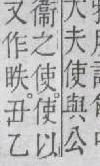 大夫使與公
衞之使使以
又作昳丑乙